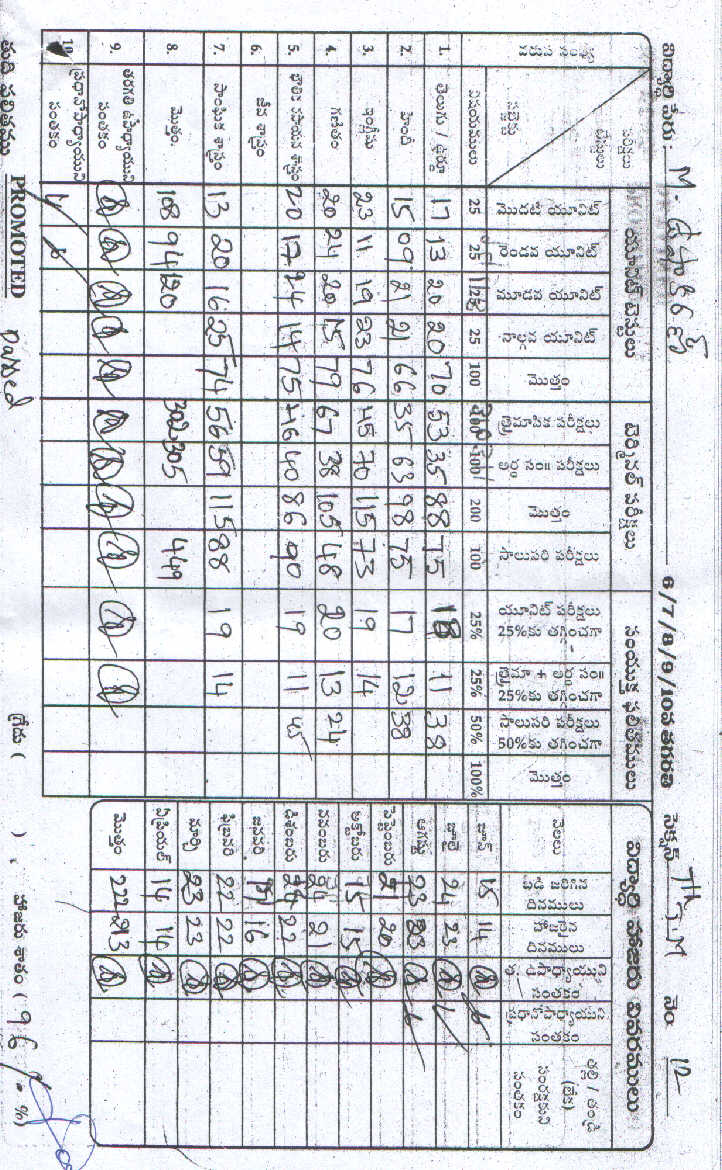 విద్యార్థి పేరు : M. ఉషాకిరణ్ 6/7/8/9/10వ తరగతి సెక్షన్ 7th T.M నెం. 12
వరుస సంఖ్య పరీక్షలు యూనిట్ టెస్టులు టెర్మినల్ పరీక్షలు సంయుక్త ఫలితములు
సబ్జెక్టు మొదటి యూనిట్ రెండవ యూనిట్ మూడవ యూనిట్ నాల్గవ యూనిట్ మొత్తం త్రైమాసిక పరీక్షలు అర్ధ సం॥ పరీక్షలు మొత్తం సాలుసరి పరీక్షలు యూనిట్ పరీక్షలు 25%కు తగ్గించగా త్రైమా + అర్ధ సం॥ 25%కు తగ్గించగా సాలుసరి పరీక్షలు 50%కు తగ్గించగా మొత్తం
విషయములు 25 25 25 100 100 200 100 25% 25% 50% 100%
1. తెలుగు / ఉర్దూ 17 13 20 20 70 53 35 88 75 18 11 38
2. హిందీ 15 09 21 21 66 35 63 98 75 17 12 38
3. ఇంగ్లీషు 23 11 19 23 76 45 70 115 73 19 14
4. గణితం 20 24 20 15 79 67 38 105 48 20 13 24
5. భౌతిక రసాయన శాస్త్రం 20 17 24 14 75 46 40 86 90 19 11 45
6. జీవ శాస్త్రం
7. సాంఘిక శాస్త్రం 13 20 16 25 74 56 59 115 88 19 14
8. మొత్తం 108 94 120 302 305 449
9. తరగతి ఉపాధ్యాయుని సంతకం
10. ప్రధానోపాధ్యాయుని సంతకం
తుది ఫలితము PROMOTED Passed గ్రేడు ( ) , హాజరు శాతం ( 96 %)
విద్యార్థి హాజరు వివరములు
నెలలు బడి జరిగిన దినములు హాజరైన దినములు త. ఉపాధ్యాయుని సంతకం ప్రధానోపాధ్యాయుని సంతకం తల్లి / తండ్రి (లేక) సంరక్షకుని సంతకం
జూన్ 15 14
జూలై 24 23
ఆగస్టు 23 23
సెప్టెంబరు 21 20
అక్టోబరు 15 15
నవంబరు 24 21
డిశంబరు 24 22
జనవరి 17 16
ఫిబ్రవరి 22 22
మార్చి 23 23
ఏప్రియల్ 14 14
మొత్తం 222 213